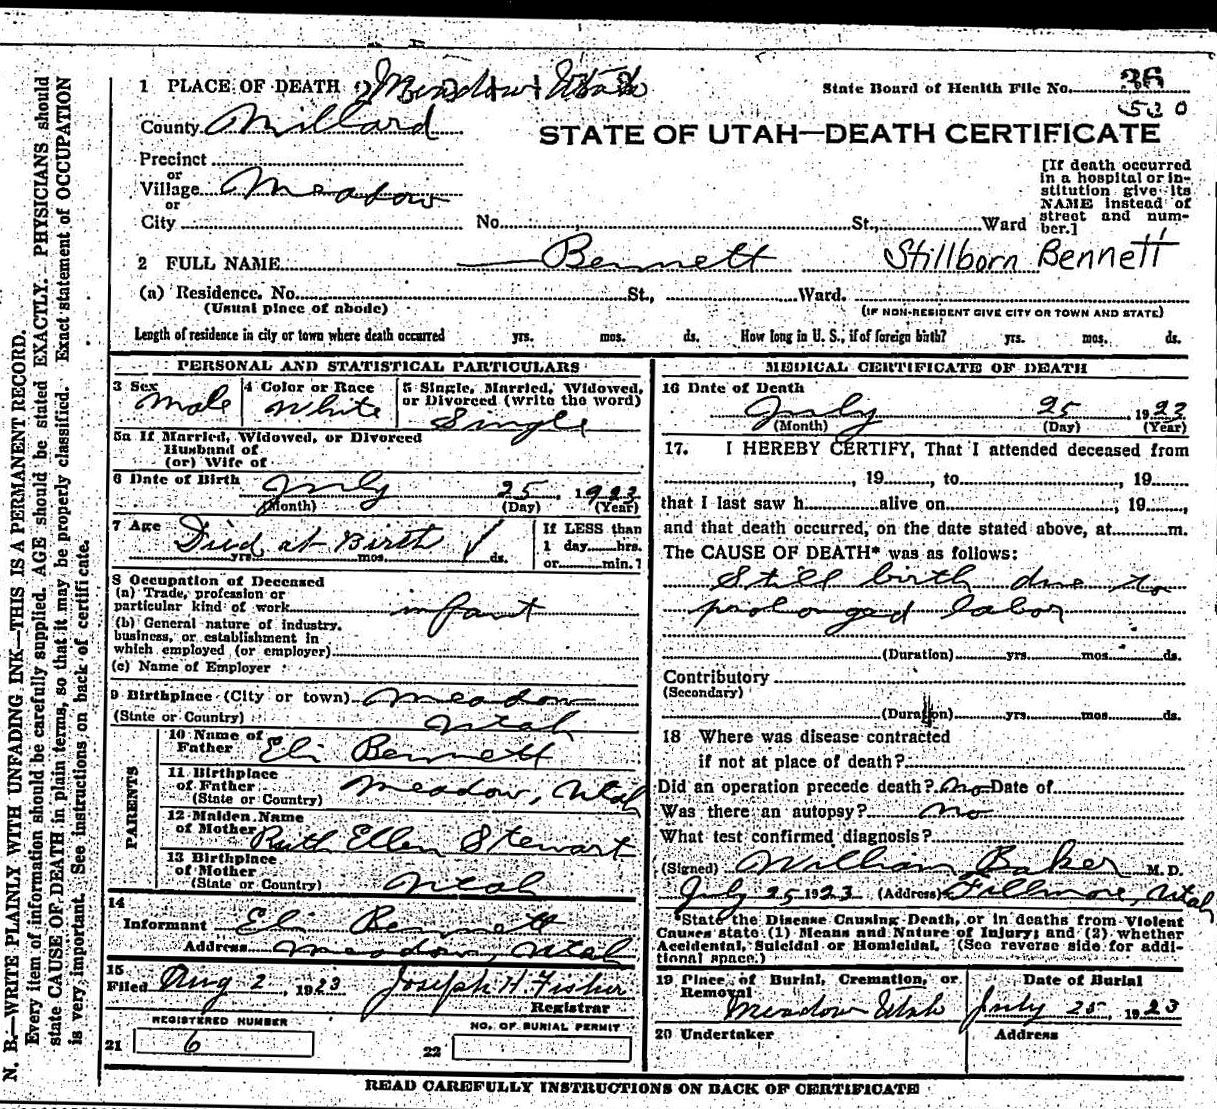 1 PLACE OF DEATH Meadow Utah
State Board of Health File No. 36
530
County Millard
STATE OF UTAH—DEATH CERTIFICATE
Precinct
or
Village Meadow
or
City No. St., Ward
[If death occurred in a hospital or in-
stitution give its
NAME instead of
street and num-
ber.]
2 FULL NAME Bennett Stillborn Bennett
(a) Residence. No. St., Ward.
(Usual place of abode) (IF NON-RESIDENT GIVE CITY OR TOWN AND STATE)
Length of residence in city or town where death occurred yrs. mos. ds. How long in U. S., if of foreign birth? yrs. mos. ds.
PERSONAL AND STATISTICAL PARTICULARS
3 Sex 4 Color or Race 5 Single, Married, Widowed,
or Divorced (write the word)
Male White Single
5a If Married, Widowed, or Divorced
Husband of
(or) Wife of
6 Date of Birth July 25, 1923
(Month) (Day) (Year)
7 Age Died at Birth ✓
yrs. mos. ds.
If LESS than
1 day hrs.
or min.?
8 Occupation of Deceased
(a) Trade, profession or
particular kind of work infant
(b) General nature of industry,
business, or establishment in
which employed (or employer)
(c) Name of Employer
9 Birthplace (City or town) Meadow
(State or Country) Utah
PARENTS
10 Name of
Father Eli Bennett
11 Birthplace
of Father Meadow, Utah
(State or Country)
12 Maiden Name
of Mother Ruth Ellen Stewart
13 Birthplace
of Mother
(State or Country) Utah
14
Informant Eli Bennett
Address Meadow, Utah
15
Filed Aug 2, 1923 Joseph H. Fisher
Registrar
REGISTERED NUMBER NO. OF BURIAL PERMIT
21 6 22
MEDICAL CERTIFICATE OF DEATH
16 Date of Death
July 25, 1923
(Month) (Day) (Year)
17. I HEREBY CERTIFY, That I attended deceased from
, 19 , to , 19
that I last saw h alive on , 19 ,
and that death occurred, on the date stated above, at m.
The CAUSE OF DEATH* was as follows:
Still birth due to
prolonged labor
(Duration) yrs. mos. ds.
Contributory
(Secondary)
(Duration) yrs. mos. ds.
18 Where was disease contracted
if not at place of death?
Did an operation precede death? no Date of
Was there an autopsy? no
What test confirmed diagnosis?
(Signed) William Baker M. D.
July 25 1923 (Address) Fillmore, Utah
*State the Disease Causing Death, or in deaths from Violent
Causes state (1) Means and Nature of Injury; and (2) whether
Accidental, Suicidal or Homicidal. (See reverse side for addi-
tional space.)
19 Place of Burial, Cremation, or
Removal Meadow Utah
Date of Burial
July 25, 1923
20 Undertaker Address
READ CAREFULLY INSTRUCTIONS ON BACK OF CERTIFICATE
N. B.—WRITE PLAINLY WITH UNFADING INK—THIS IS A PERMANENT RECORD.
Every item of information should be carefully supplied. AGE should be stated EXACTLY. PHYSICIANS should
state CAUSE OF DEATH in plain terms, so that it may be properly classified. Exact statement of OCCUPATION
is very important. See instructions on back of certificate.